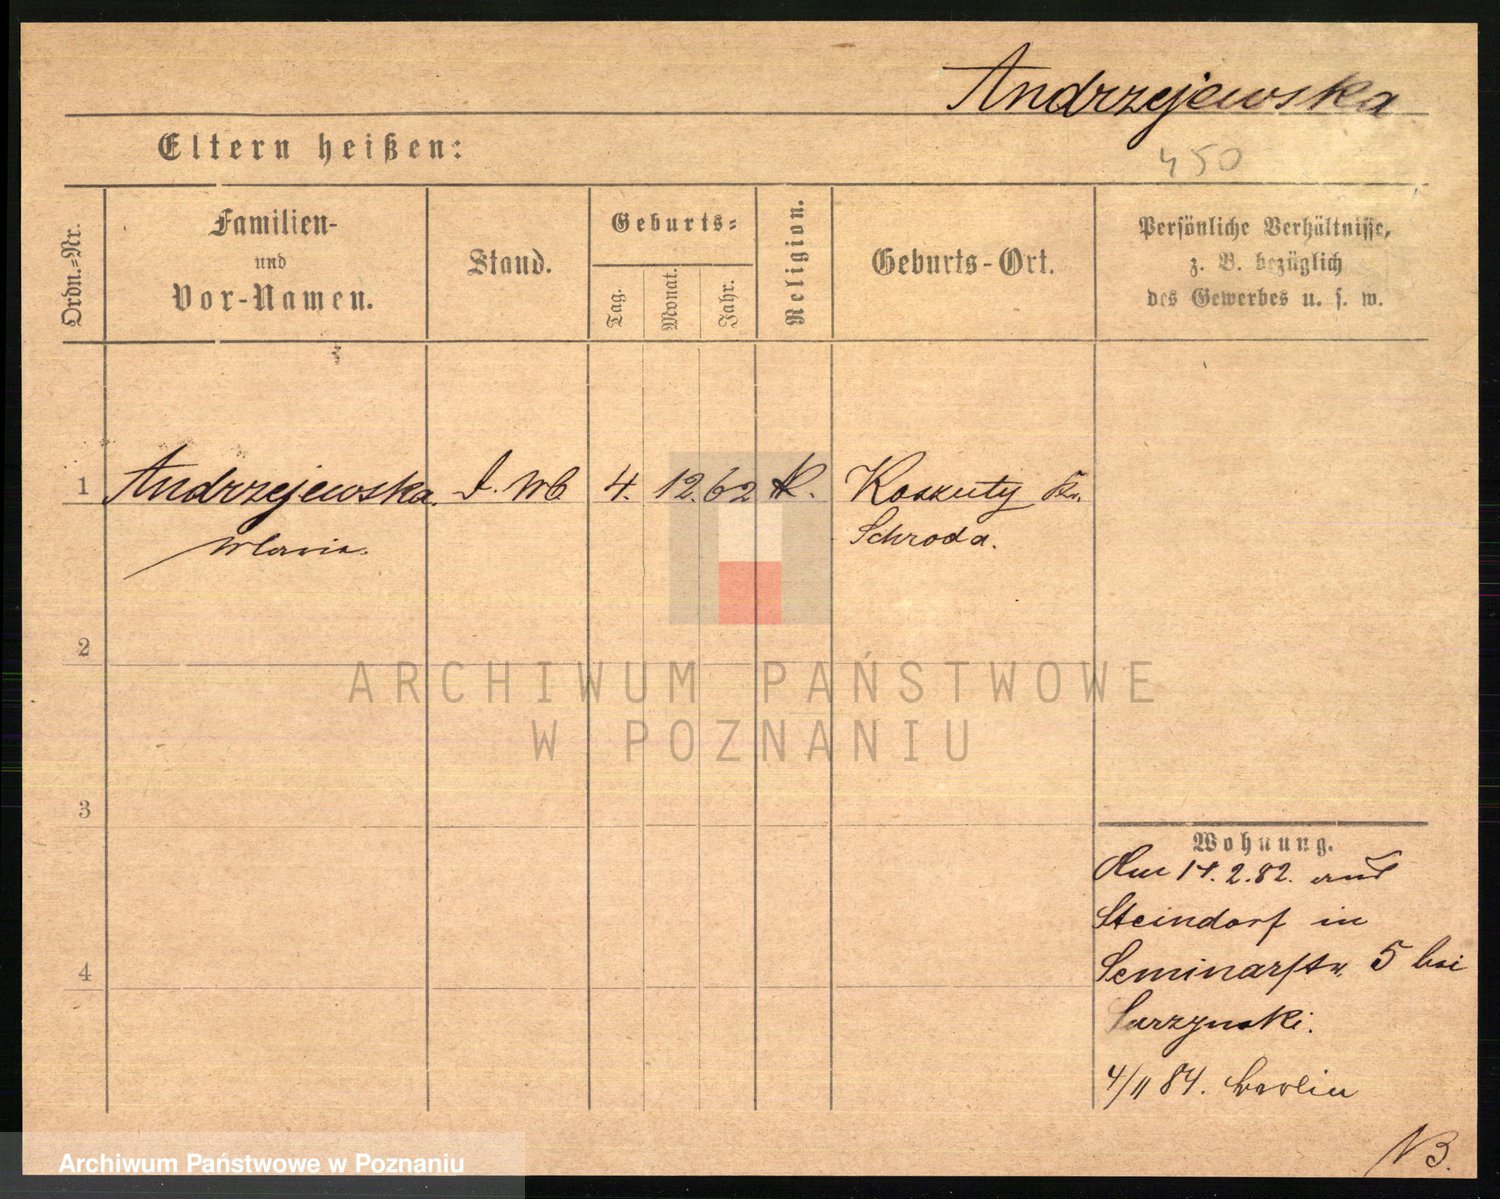 Andrzejewska
Eltern heißen:
450
Ordn.=Nr.
Familien-
und
Vor-Namen.
Stand.
Geburts=
Tag.
Monat.
Jahr.
Religion.
Geburts-Ort.
Persönliche Verhältnisse,
z. B. bezüglich
des Gewerbes u. s. w.
1 Andrzejewska. D. M 4. 12. 62 K. Koszuty Kr.
Maria. Schroda.
2
ARCHIWUM PAŃSTWOWE
W POZNANIU
3
Wohnung.
Am 14.2.82. aus
Steindorf in
Seminarstr. 5 bei
Sarzynski.
4
4/11 84. Berlin
NB.
Archiwum Państwowe w Poznaniu